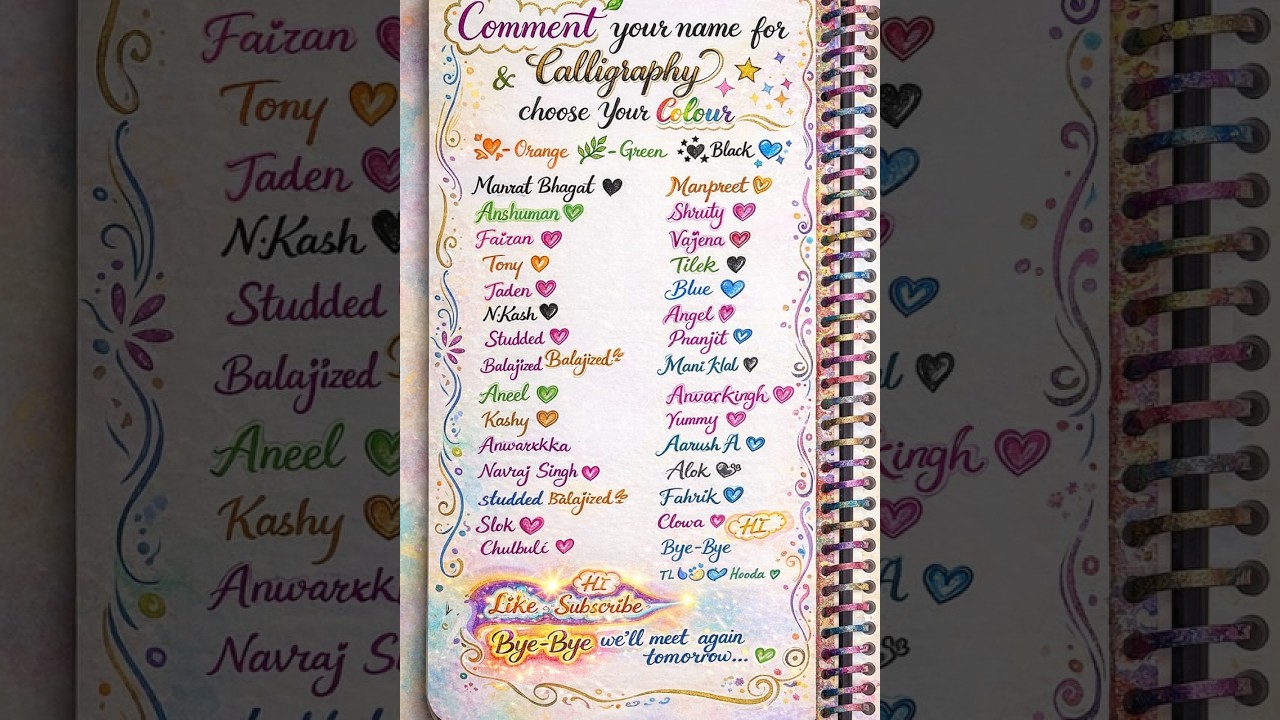 Comment your name for
& Calligraphy
choose Your Colour
- Orange - Green Black
Manrat Bhagat
Anshuman
Faizan
Tony
Jaden
N.Kash
Studded
Balajized Balajized
Aneel
Kashy
Anwarxkka
Navraj Singh
studded Balajized
Slok
Chulbulć
Manpreet
Shruty
Vajena
Tilek
Blue
Angel
Pranjit
Mani Klal
AnwarKingh
Yummy
Aarush A
Alok
Fahrik
Clowa HI
Bye-Bye
TL Hooda
HI
Like Subscribe
Bye-Bye we'll meet again
tomorrow...
Faizan
Tony
Jaden
N:Kash
Studded
Balajized
Aneel
Kashy
Anwarxk
Navraj S